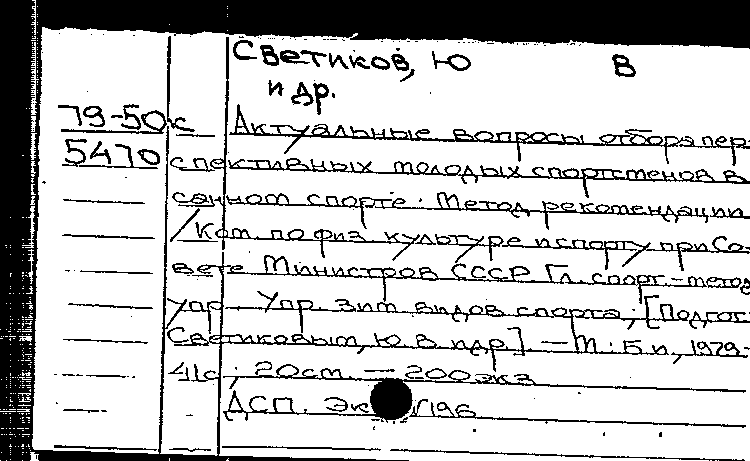 Светиков, Ю В
и др.
79-50к Актуальные вопросы отбора пер-
5470 спективных молодых спортсменов в
санном спорте: Метод рекомендации
/Ком. по физ. культуре и спорту при Со-
вете Министров СССР Гл. спорт.-метод
упр. Упр. зим видов спорта; [Подгот
Светиковым, Ю В и др] — М: Б и, 1979-
41с; 20см — 200экз
ДСП. Эк 196